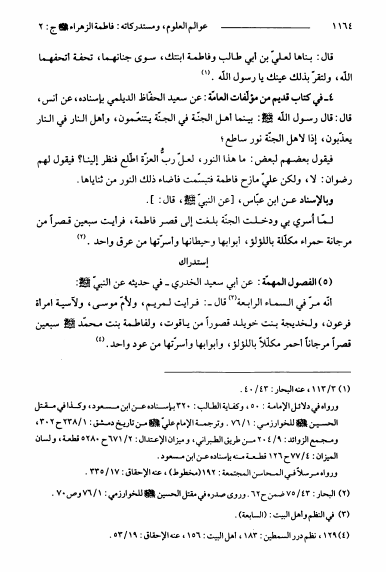 ١١٦٤ عوالم العلوم، ومستدركاته: فاطمة الزهراء ﷺ ج: ٢
قال: بناها لعليّ بن أبي طالب وفاطمة ابنتك، سوى جنانهما، تحفة أتحفهما
الله، ولتقرّ بذلك عينك يا رسول الله. (١)
٤ـ في كتاب قديم من مؤلّفات العامّة: عن سعيد الحفّاظ الديلمي بإسناده، عن أنس،
قال: قال رسول الله ﷺ: بينما أهل الجنّة في الجنّة يتنعّمون، وأهل النار في النار
يعذّبون، إذا لأهل الجنّة نور ساطع؛
فيقول بعضهم لبعض: ما هذا النور، لعلّ ربّ العزّة اطّلع فنظر إلينا؟ فيقول لهم
رضوان: لا، ولكن عليّ مازح فاطمة فتبسّمت فأضاء ذلك النور من ثناياها.
وبالإسناد عن ابن عبّاس، [عن النبيّ ﷺ، قال: ].
لمّا أسري بي ودخلت الجنّة بلغت إلى قصر فاطمة، فرأيت سبعين قصراً من
مرجانة حمراء مكلّلة باللؤلؤ، أبوابها وحيطانها وأسرّتها من عرق واحد. (٢)
إستدراك
(٥) الفصول المهمّة: عن أبي سعيد الخدري ـ في حديثه عن النبيّ ﷺ:
أنّه مرّ في السماء الرابعة(٣) قال ـ: فرأيت لمريم، ولأمّ موسى، ولآسية امرأة
فرعون، ولخديجة بنت خويلد قصوراً من ياقوت، ولفاطمة بنت محمّد ﷺ سبعين
قصراً مرجاناً أحمر مكلّلاً باللؤلؤ، وأبوابها وأسرّتها من عود واحد. (٤)
(١) ١١٣/٣، عنه البحار: ٤٠/٤٣.
ورواه في دلائل الإمامة: ٥٠، وكفاية الطالب: ٣٢٠ بإسناده عن ابن مسعود، وكذا في مقتل
الحسين ﷺ للخوارزمي: ٧٦/١. وترجمة الإمام عليّ ﷺ من تاريخ دمشق: ٢٣٨/١ ح٣٠٢،
ومجمع الزوائد: ٢٠٤/٩ من طريق الطبراني، وميزان الإعتدال: ٦٧١/٢ ح٥٢٨٠ قطعة، ولسان
الميزان: ٧٧/٤ ح١٢٦ قطعة منه بإسناده عن ابن مسعود.
ورواه مرسلاً في المحاسن المجتمعة: ١٩٢ (مخطوط)، عنه الإحقاق: ٣٣٥/١٧.
(٢) البحار: ٧٥/٤٣ ضمن ح٦٢. وروى صدره في مقتل الحسين ﷺ للخوارزمي: ٧٦/١ وص٧٠.
(٣) في النظم وأهل البيت: (السابعة).
(٤) ١٢٩، نظم درر السمطين: ١٨٣، أهل البيت: ١٥٦، عنه الإحقاق: ٥٣/١٩.